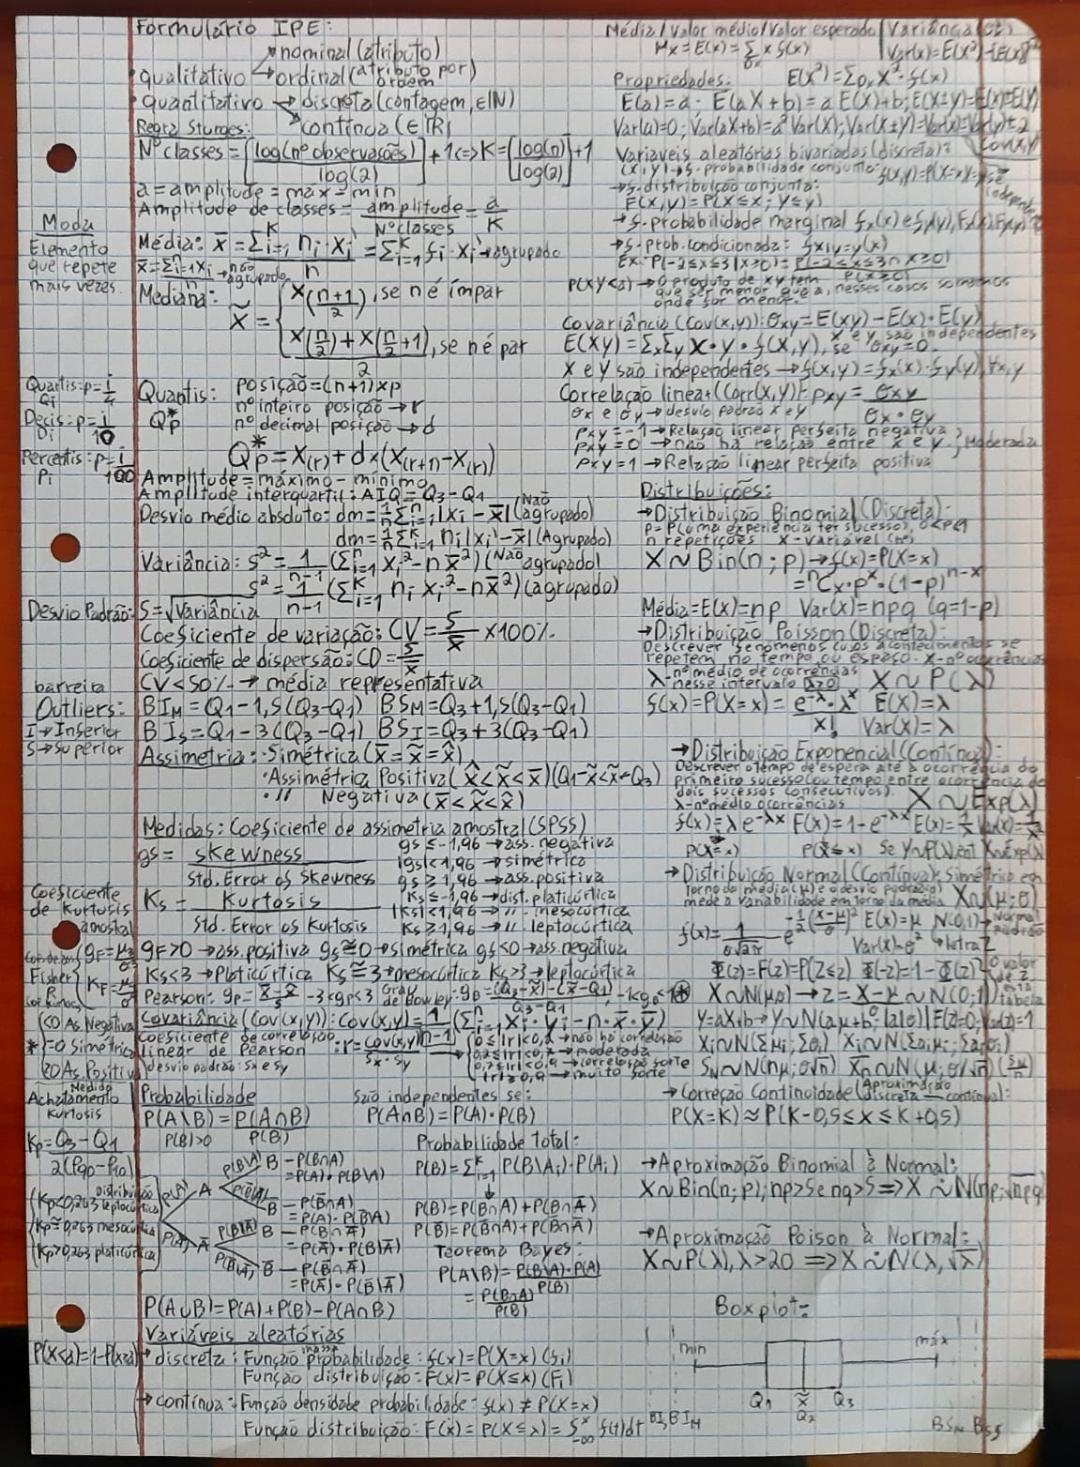 Formulário IPE:
nominal (atributo)
• qualitativo → ordinal (atributo por ordem)
• quantitativo → discreta (contagem, ∈ℕ)
contínua (∈ℝ)
Regra Sturges:
Nº classes = [log(nº observações) / log(2)] + 1 <=> K = [log(n) / log(2)] + 1
a = amplitude = max - min
Amplitude de classes = amplitude / Nº classes = a / K
Moda
Elemento
que repete
mais vezes.
Média: x̄ = Σᵢ₌₁ᴷ nᵢ · xᵢ / n = Σᵢ₌₁ᴷ fᵢ · xᵢ → agrupado
x̄ = Σᵢ₌₁ⁿ xᵢ / n → não agrupado
Mediana: x̃ = { x((n+1)/2), se n é ímpar
(x(n/2) + x(n/2 + 1)) / 2, se n é par
Quartis: p = i/4
Qi
Decis: p = i/10
Di
Percentis: p = i/100
Pi
Quantis: posição = (n+1)×p
Q*p nº inteiro posição → r
nº decimal posição → d
Q*p = X(r) + d×(X(r+1) - X(r))
Amplitude = máximo - mínimo
Amplitude interquartil: AIQ = Q3 - Q1
Desvio médio absoluto: dm = 1/n Σᵢ₌₁ⁿ |xᵢ - x̄| (Não agrupado)
dm = 1/n Σᵢ₌₁ᴷ nᵢ |xᵢ - x̄| (Agrupado)
Variância: s² = 1/(n-1) (Σᵢ₌₁ⁿ xᵢ² - n x̄²) (Não agrupado)
s² = 1/(n-1) (Σᵢ₌₁ᴷ nᵢ xᵢ² - n x̄²) (agrupado)
Desvio Padrão: S = √Variância
Coeficiente de variação: CV = s/x̄ × 100%
Coeficiente de dispersão: CD = s/x̄
CV < 50% → média representativa
barreira
Outliers:
I → Inferior
S → Superior
BIM = Q1 - 1,5(Q3-Q1) BSM = Q3 + 1,5(Q3-Q1)
BIS = Q1 - 3(Q3-Q1) BSI = Q3 + 3(Q3-Q1)
Assimetria: • Simétrica (x̄ = x̃ = x̂)
• Assimétrica Positiva (x̂ < x̃ < x̄) (Q1 - x̃ < x̃ - Q3)
• " Negativa (x̄ < x̃ < x̂)
Medidas: Coeficiente de assimetria amostral (SPSS)
gs = skewness / Std. Error of Skewness
gs ≤ -1,96 → ass. negativa
|gs| < 1,96 → simétrica
gs ≥ 1,96 → ass. positiva
Coeficiente
de Kurtosis
amostral
Ks = Kurtosis / Std. Error os Kurtosis
Ks ≤ -1,96 → dist. platicúrtica
|Ks| < 1,96 → " mesocúrtica
Ks ≥ 1,96 → " leptocúrtica
Fisher
gF > 0 → ass. positiva gs ≅ 0 → simétrica gs < 0 → ass. negativa
Ks < 3 → Platicúrtica Ks ≅ 3 → mesocúrtica Ks > 3 → leptocúrtica
Pearson: gp = (x̄ - x̂)/s -3 < gp < 3 Grau de Bowley: gb = ((Q3-x̃) - (x̃-Q1)) / (Q3-Q1), -1 < gb < 1 *
* { <0 As. Negativa
=0 Simétrica
>0 As. Positiva
Covariância (Cov(x,y)): Cov(x,y) = 1/(n-1) (Σᵢ₌₁ⁿ xᵢ · yᵢ - n · x̄ · ȳ)
Coeficiente de correlação
linear de Pearson : r = cov(x,y) / (sx · sy)
desvio padrão: sx e sy
→ não há correlação
→ moderada
→ correlação forte
→ muito forte
Medida
Achatamento
Kurtosis
Kp = (Q3 - Q1) / 2(P90 - P10)
Distribuição
Kp < 0,263 leptocúrtica
Kp ≅ 0,263 mesocúrtica
Kp > 0,263 platicúrtica
Probabilidade
P(A\B) = P(A∩B) / P(B)
P(B) > 0
São independentes se:
P(A∩B) = P(A) · P(B)
P(A) A P(B\A) B — P(B∩A)
= P(A) · P(B\A)
P(B̄\A) B̄ — P(B̄∩A)
= P(A) · P(B̄\A)
P(Ā) Ā P(B\Ā) B — P(B∩Ā)
= P(Ā) · P(B\Ā)
P(B̄\Ā) B̄ — P(B̄∩Ā)
= P(Ā) · P(B̄\Ā)
Probabilidade Total:
P(B) = Σᵢ₌₁ᴷ P(B\Aᵢ) · P(Aᵢ)
P(B) = P(B∩A) + P(B∩Ā)
P(B̄) = P(B̄∩A) + P(B̄∩Ā)
Teorema Bayes:
P(A\B) = P(B\A) · P(A) / P(B)
= P(B∩A) / P(B)
P(A∪B) = P(A) + P(B) - P(A∩B)
Variáveis aleatórias
P(X<a) = 1 - P(X≥a)
→ discreta: Função massa probabilidade: f(x) = P(X=x) (fi)
Função distribuição: F(x) = P(X≤x) (Fi)
→ contínua: Função densidade probabilidade: f(x) ≠ P(X=x)
Função distribuição: F(x) = P(X≤x) = ∫ f(t)dt
Média/Valor médio/Valor esperado | Variância (σ²)
μx = E(x) = Σ x f(x) Var(x) = E(x²) - [E(x)]²
Propriedades: E(X²) = ΣDx X² · f(x)
E(a) = a · E(aX+b) = a E(X) + b; E(X±Y) = E(X) ± E(Y)
Var(a) = 0; Var(aX+b) = a² Var(X); Var(X±Y) = Var(X) + Var(Y) ± 2 Cov(X,Y)
Variáveis aleatórias bivariadas (discreta):
(X,Y) → f. probabilidade conjunta: f(x,y) = P(X=x; Y=y)
→ f. distribuição conjunta:
F(x,y) = P(X≤x; Y≤y)
→ f. probabilidade marginal fx(x) e fy(y),
→ f. prob. condicionada: fX|Y=y(x)
Ex: P(-2≤X≤3|X≥0) = P(-2≤X≤3 ∩ X≥0) / P(X≥0)
P(XY<a) → o produto de xy tem
que ser menor que a, nesses casos somamos
onde for menor.
Covariância (Cov(x,y)): σxy = E(XY) - E(X) · E(Y)
E(XY) = ΣxΣy x · y · f(x,y), se x e y são independentes σxy = 0.
X e Y são independentes → f(x,y) = fx(x) · fy(y), ∀x,y
Correlação linear (Corr(X,Y)): ρxy = σxy / (σx · σy)
σx e σy → desvio padrão x e y
ρxy = -1 → Relação linear perfeita negativa
ρxy = 0 → não há relação entre x e y ; Moderada
ρxy = 1 → Relação linear perfeita positiva
Distribuições:
→ Distribuição Binomial (Discreta):
p = P(uma experiência ter sucesso), 0<p<1
n repetições X - variável
X ~ Bin(n; p) → f(x) = P(X=x)
= ⁿCx · pˣ · (1-p)ⁿ⁻ˣ
Média = E(X) = np Var(X) = npq (q=1-p)
→ Distribuição Poisson (Discreta):
Descrever fenómenos cujos acontecimentos se
repetem no tempo ou espaço. X - nº ocorrências
λ - nº médio de ocorrências
nesse intervalo λ>0 X ~ P(λ)
f(x) = P(X=x) = e^-λ · λˣ / x! E(X) = λ
Var(X) = λ
→ Distribuição Exponencial (Contínua):
Descrever o tempo de espera até à ocorrência do
primeiro sucesso (ou tempo entre ocorrência de
dois sucessos consecutivos).
λ - nº médio ocorrências X ~ Exp(λ)
f(x) = λe^-λx F(x) = 1 - e^-λx E(X) = 1/λ Var(X) = 1/λ²
P(X=x) P(X≤x)
→ Distribuição Normal (Contínua): Simétrica em
torno da média (μ) e o desvio padrão (σ)
mede a variabilidade em torno da média X~N(μ;σ)
f(x) = 1/(σ√2π) e^-½((x-μ)/σ)² E(X) = μ N(0,1) → Normal padrão
Var(X) = σ² → letra Z
Φ(z) = F(z) = P(Z≤z) Φ(-z) = 1 - Φ(z)
X~N(μ;σ) → Z = (X-μ)/σ ~ N(0;1)
Y = aX+b → Y~N(aμ+b; |a|σ) E(Z)=0; Var(Z)=1
Sn~N(nμ; σ√n) X̄n~N(μ; σ/√n)
→ Correção Continuidade (Aproximação discreta — contínua):
P(X=K) ≈ P(K-0,5 ≤ X ≤ K+0,5)
→ Aproximação Binomial à Normal:
X~Bin(n; p); np>5 e nq>5 => X ∼̇ N(np; √npq)
→ Aproximação Poison à Normal:
X~P(λ), λ>20 => X ∼̇ N(λ, √λ)
Boxplot:
min máx
Q1 x̃ Q3
Q2
BIS BIM BSM BSS